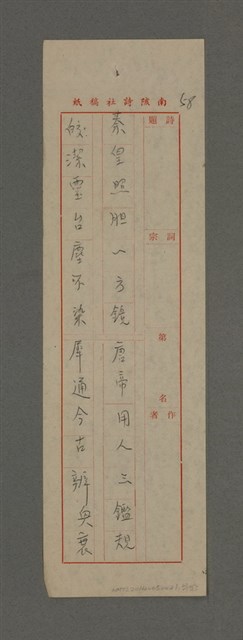 南陔詩社稿紙
58
詩題
詞宗
第 名
作者
秦皇照胆一方鏡唐帝用人三鑑規
皎潔靈台塵不染犀通今古辦興衰